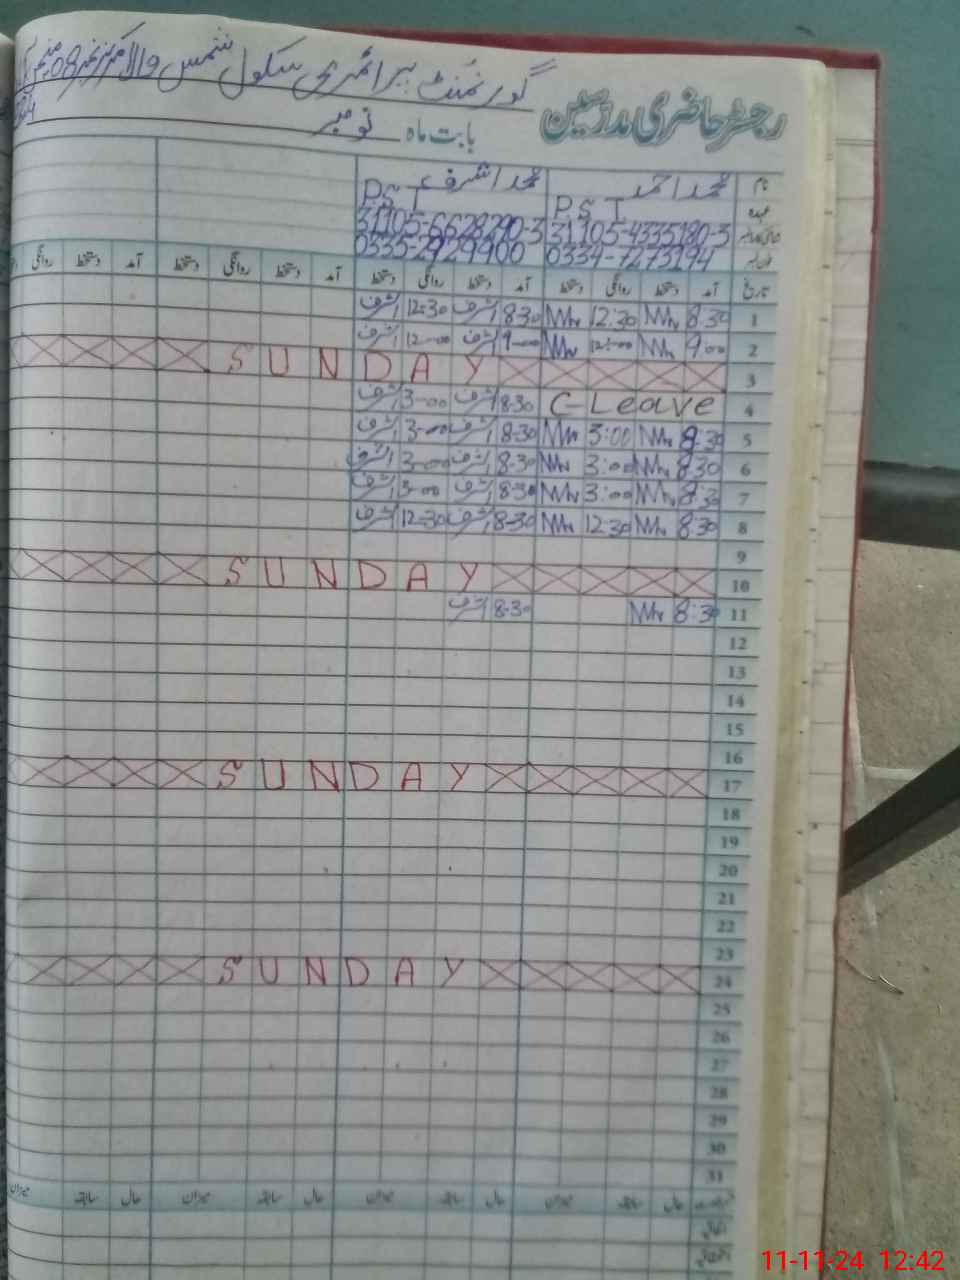 گورنمنٹ پرائمری سکول شمس والا مرکز نمبر 08
رجسٹر حاضری مدرسین
بابت ماہ نومبر
نام محمد احمد محمد اشرف
عہدہ P S T P S T
31105-4335180-3 31105-6628290-3
0334-7273194 0335-2929900
تاریخ آمد دستخط روانگی دستخط آمد دستخط روانگی دستخط آمد دستخط روانگی دستخط آمد دستخط روانگی
1 8:30 12:30 8-30 اشرف 12-30 اشرف
2 9:00 12:00 9-00 اشرف 12-00 اشرف
3 SUNDAY
4 C-Leave 8-30 اشرف 3-00 اشرف
5 8:30 3:00 8-30 اشرف 3-00 اشرف
6 8:30 3:00 8-30 اشرف 3-00 اشرف
7 8:30 3:00 8-30 اشرف 3-00 اشرف
8 8:30 12:30 8-30 اشرف 12-30 اشرف
9
10 SUNDAY
11 8:30 8-30 اشرف
12
13
14
15
16
17 SUNDAY
18
19
20
21
22
23
24 SUNDAY
25
26
27
28
29
30
31
حال سابقہ میزان حال سابقہ میزان حال سابقہ میزان حال سابقہ میزان
اتفاقیہ
11-11-24 12:42